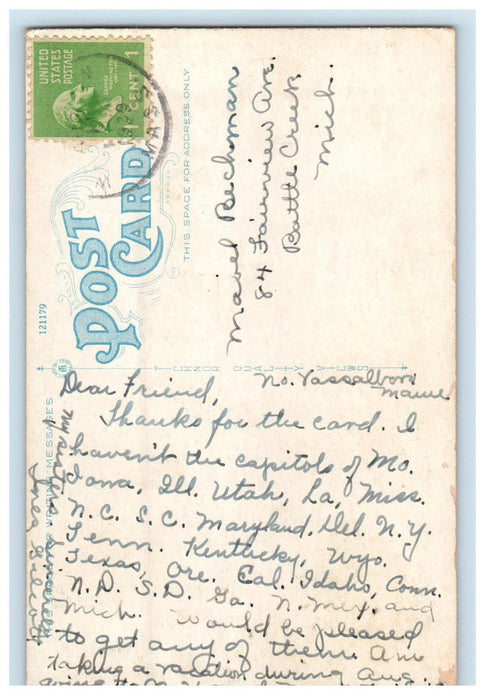 UNITED
STATES
POSTAGE
1 CENT 1
MASS
POST
CARD
THIS SPACE FOR ADDRESS ONLY
Mabel Beckman
84 Fairview Ave.
Battle Creek
Mich.
121179
TICHNOR QUALITY VIEWS
THIS SPACE FOR WRITING MESSAGES
No. Vassalboro
Maine
Dear Friend,
Thanks for the card. I
haven't the capitols of Mo.
Iowa, Ill. Utah, La, Miss.
N.C. S.C. Maryland, Del. N.Y.
Tenn. Kentucky, Wyo.
Texas, Ore. Cal. Idaho, Conn.
N.D. S.D. Ga. N. Mex. and
Mich. Would be pleased
to get any of them. Am
taking a vacation during Aug.
going to